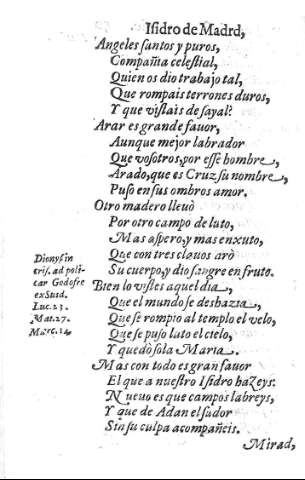 Isidro de Madrd,
Angeles santos y puros,
Compañia celestial,
Quien os dio trabajo tal,
Que rompais terrones duros,
Y que vistais de sayal?
Arar es grande fauor,
Aunque mejor labrador
Que vosotros, por esse hombre,
Arado, que es Cruz su nombre,
Puso en sus ombros amor.
Otro madero lleuò
Por otro campo de luto,
Mas aspero, y mas enxuto,
Que con tres clauos arò
Su cuerpo, y dio sangre en fruto.
Bien lo vistes aquel dia,
Que el mundo se deshazia,
Que se rompio al templo el velo,
Que se puso luto el cielo,
Y quedò sola Maria.
Mas con todo es gran fauor
El que a nuestro Isidro hazeys.
Nueuo es que campos labreys,
Y que de Adan el sudor
Sin su culpa acompañeis.
Mirad,
Dionys in
epis. ad poli-
car Godofre
ex Suid.
Luc. 23.
Mat. 27.
Marc. 14